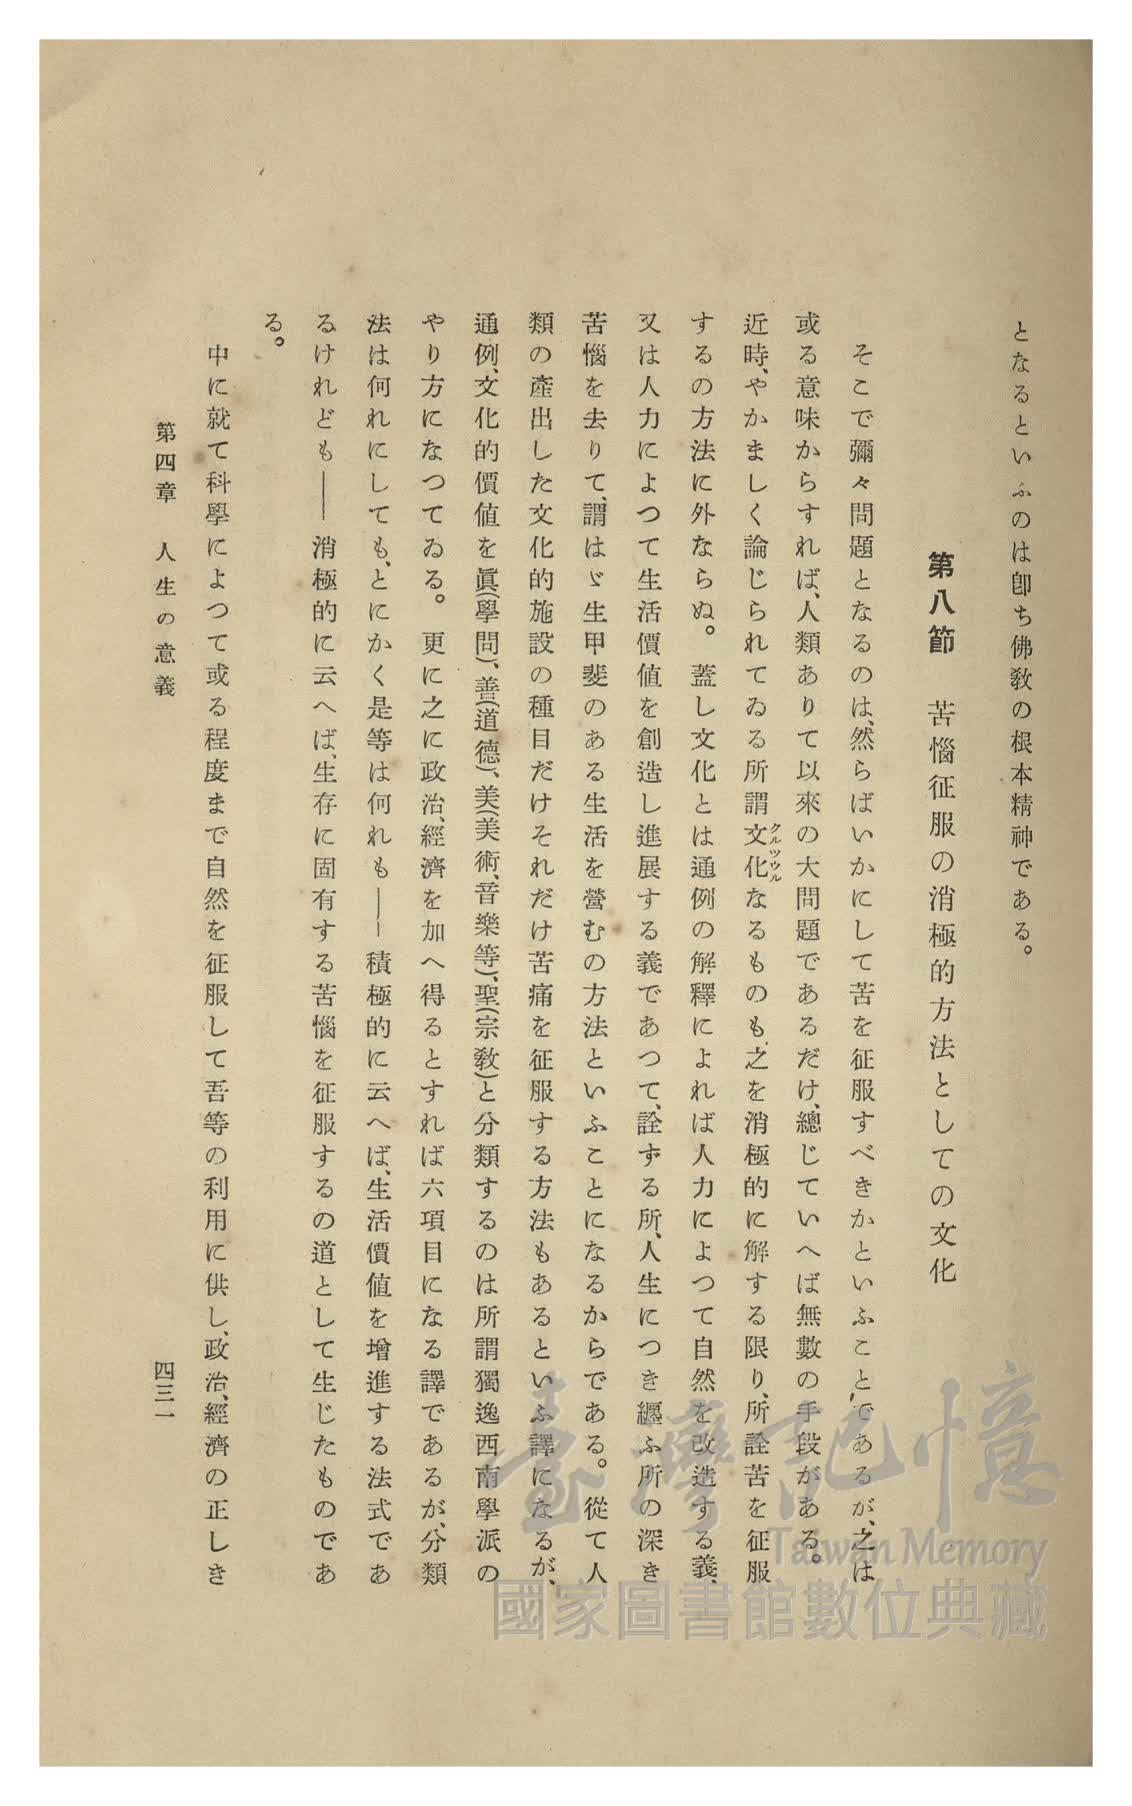 となるといふのは卽ち佛敎の根本精神である。
第八節　苦惱征服の消極的方法としての文化
そこで彌々問題となるのは、然らばいかにして苦を征服すべきかといふことであるが、之は
或る意味からすれば、人類ありて以來の大問題であるだけ、總じていへば無數の手段がある。
近時、やかましく論じられてゐる所謂文化なるものも、之を消極的に解する限り、所詮苦を征服
クルツウル
するの方法に外ならぬ。蓋し文化とは通例の解釋によれば人力によつて自然を改造する義、
又は人力によつて生活價値を創造し進展する義であつて、詮ずる所、人生につき纒ふ所の深き
苦惱を去りて、謂はゞ生甲斐のある生活を營むの方法といふことになるからである。從て人
類の產出した文化的施設の種目だけそれだけ苦痛を征服する方法もあるといふ譯になるが、
通例、文化的價値を眞(學問)、善(道德)、美(美術、音樂等)、聖(宗敎)と分類するのは所謂獨逸西南學派の
やり方になつてゐる。更に之に政治、經濟を加へ得るとすれば六項目になる譯であるが、分類
法は何れにしても、とにかく是等は何れも――積極的に云へば、生活價値を增進する法式であ
るけれども――消極的に云へば、生存に固有する苦惱を征服するの道として生じたものであ
る。
中に就て科學によつて或る程度まで自然を征服して吾等の利用に供し、政治、經濟の正しき
第四章　人生の意義
四三一
臺灣記憶
Taiwan Memory
國家圖書館數位典藏